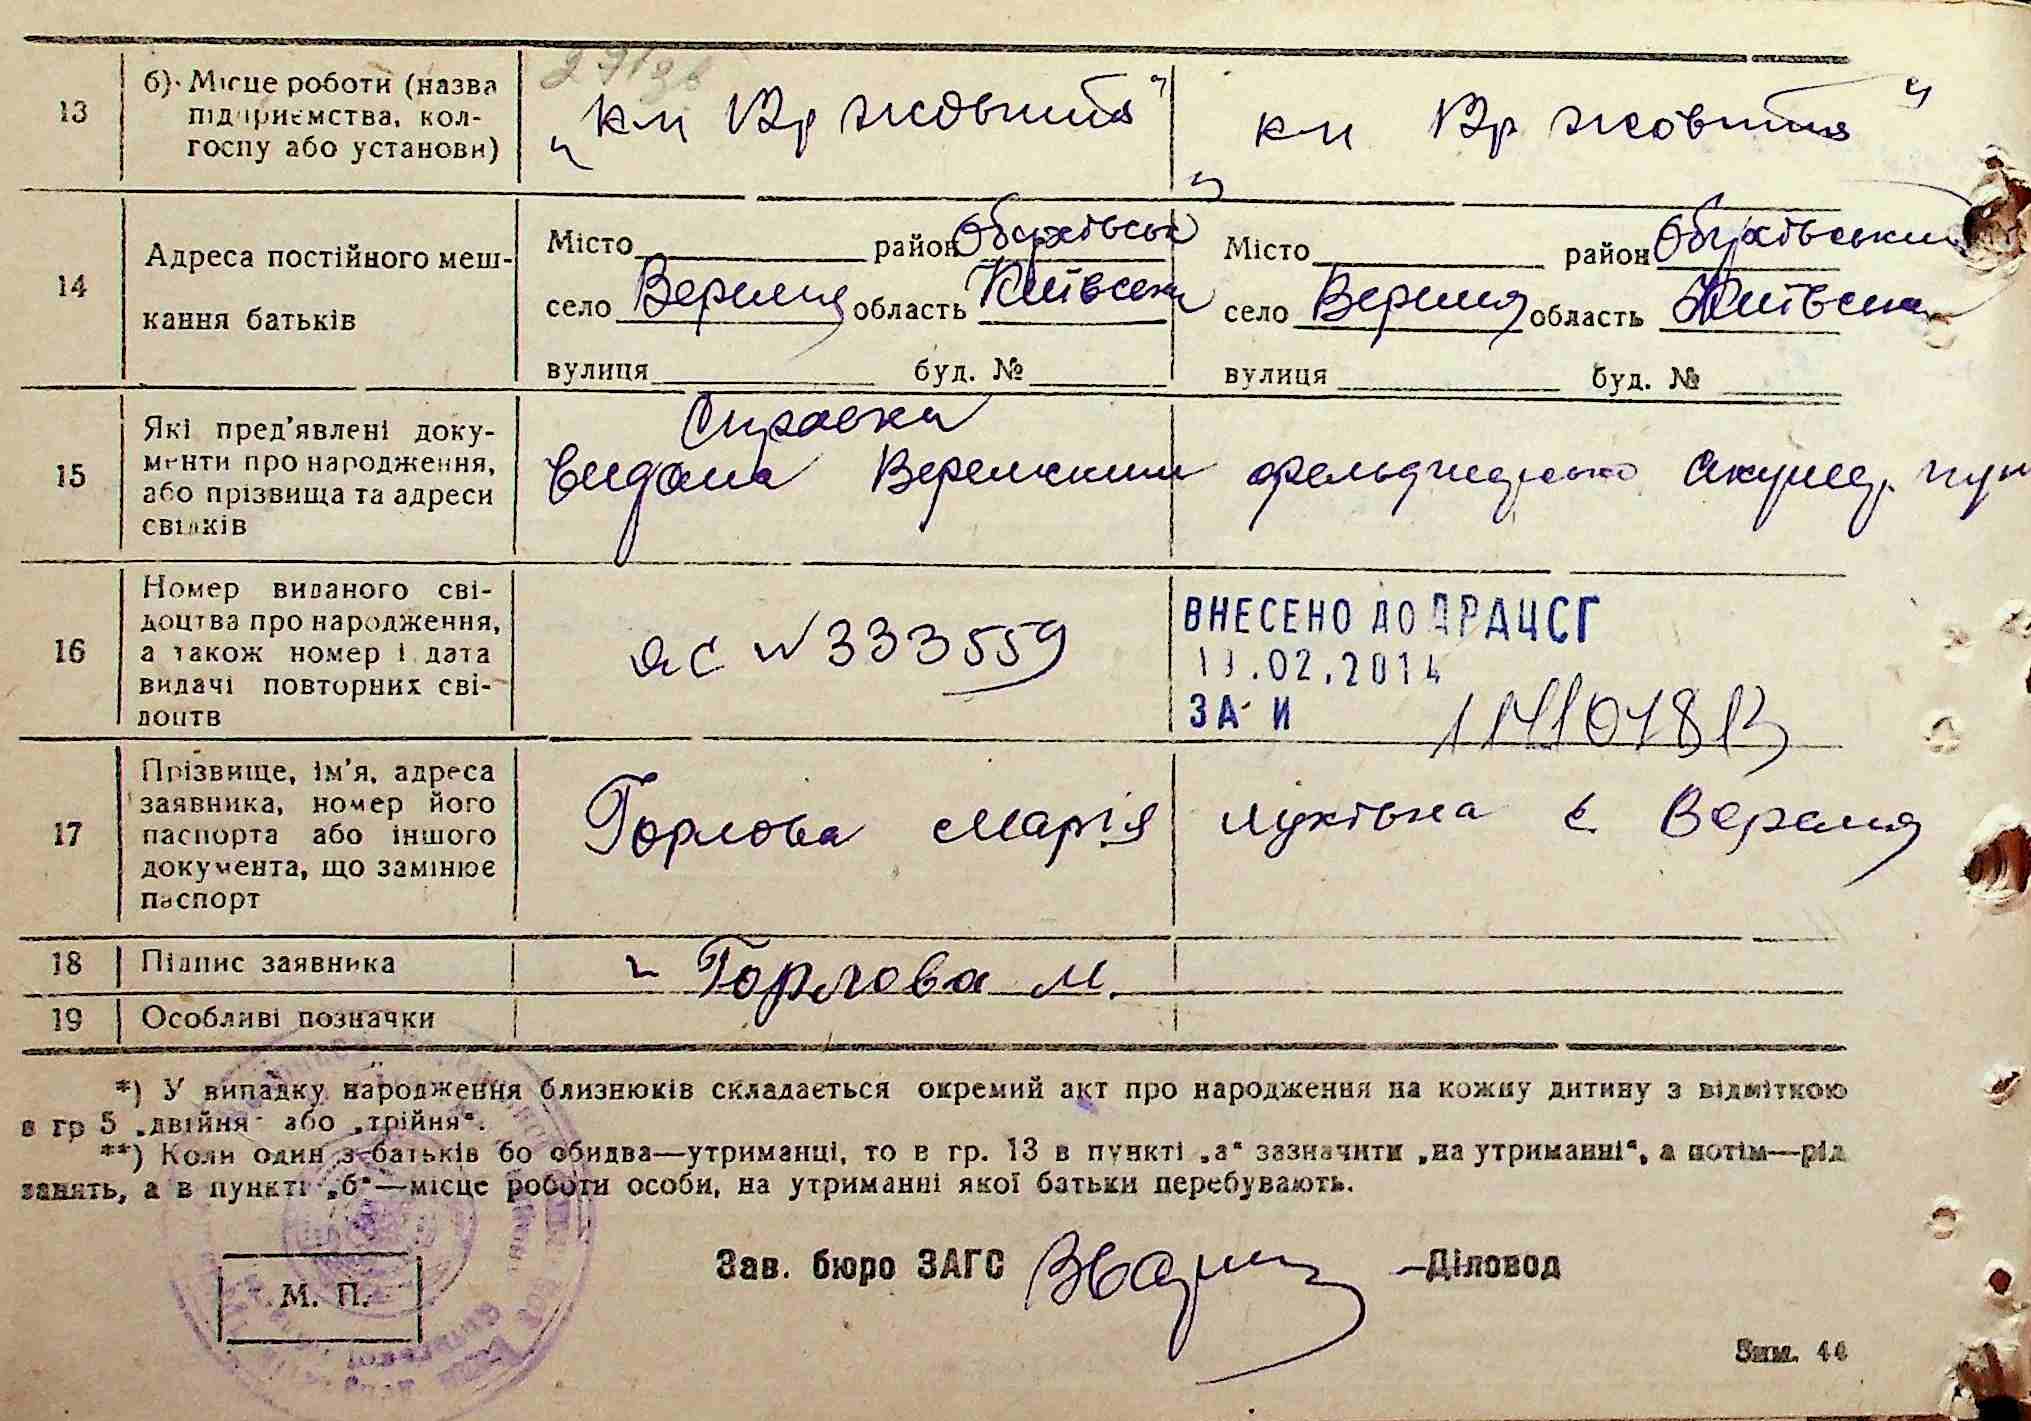 13 б) Місце роботи (назва підприємства, колгоспу або установи)
„ км Жовтня" км Жовтня"
14 Адреса постійного меш-
кання батьків
Місто район Обухівськ Місто район Обухівський
село Веремя область Київська село Веремя область Київська
вулиця буд. № вулиця буд. №
Справка
15 Які пред'явлені доку-
менти про народження,
або прізвища та адреси
свідків
видана Веремським фельдшерсько акушер. пун
16 Номер виданого сві-
доцтва про народження,
а також номер і дата
видачі повторних сві-
доцтв
ЯС № 333559
ВНЕСЕНО ДО ДРАЦСГ
.02.2014
ЗА И
17 Прізвище, ім'я, адреса
заявника, номер його
паспорта або іншого
документа, що замінює
паспорт
Горлова Марія Луківна с. Веремя
18 Підпис заявника Горлова М.
19 Особливі позначки
*) У випадку народження близнюків складається окремий акт про народження на кожну дитину з відміткою
в гр 5 „двійня" або „трійня".
**) Коли один з батьків бо обидва—утриманці, то в гр. 13 в пункті „а" зазначити „на утриманні", а потім—рід
занять, а в пункті „б"—місце роботи особи, на утриманні якої батьки перебувають.
Зав. бюро ЗАГС —Діловод
М. П.
Зам. 44